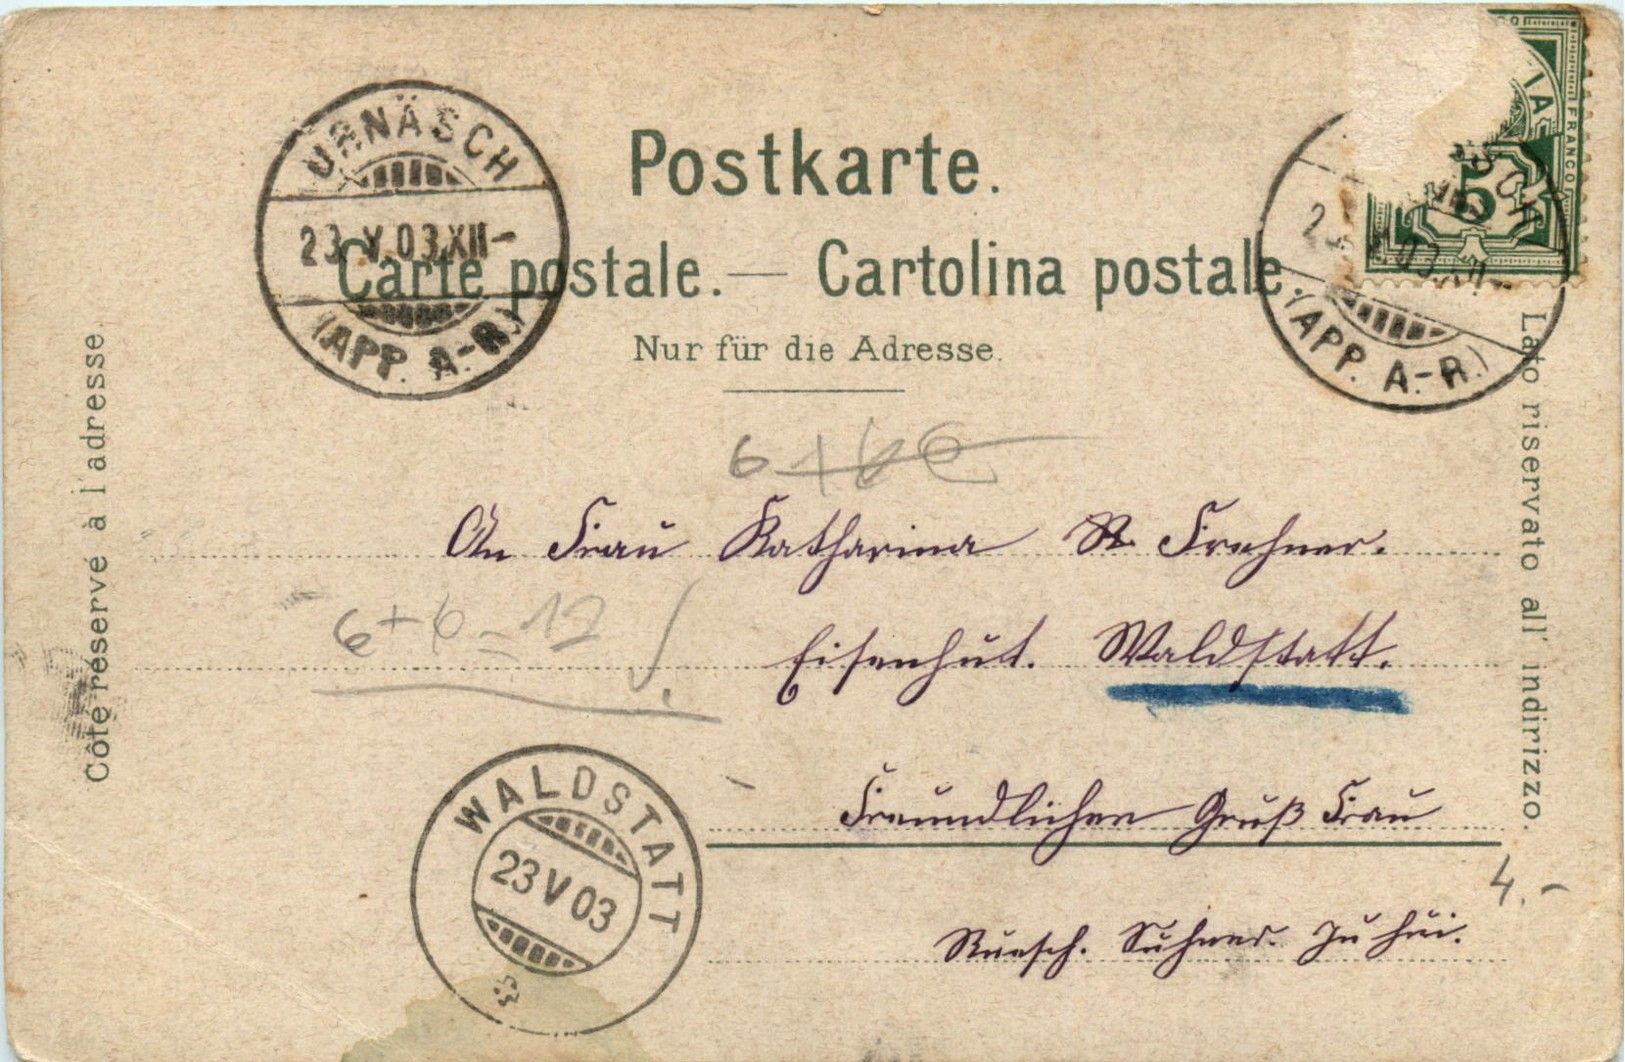 Postkarte.
Carte postale. — Cartolina postale.
Nur für die Adresse.
Côté réservé à l'adresse.
Lato riservato all' indirizzo.
URNÄSCH
23.V.03.XII-
(APP. A.-R.)
FRANCO
5
(APP. A.-R.)
6+
An Frau Katharina Frehner.
6+6=12
Eisenhut. Waldstatt.
WALDSTATT
23 V 03
Freundlichen Gruß Frau
4.-
Ruesch. Suhner. Ju hui.